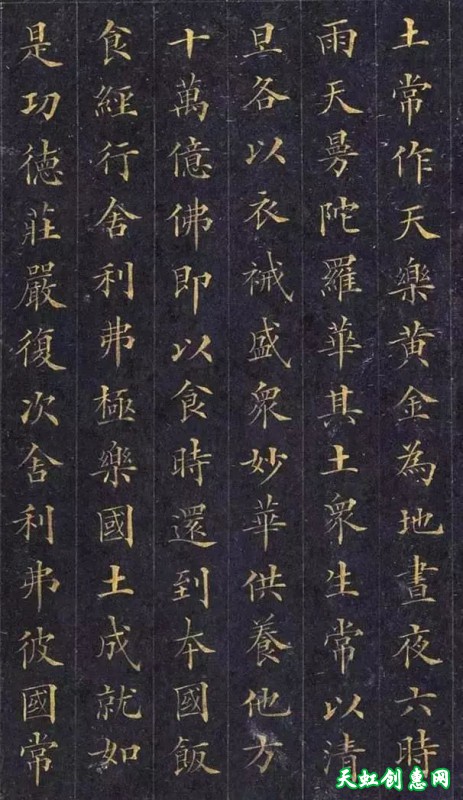 土常作天樂黃金為地晝夜六時
雨天曼陀羅華其土衆生常以清
旦各以衣祴盛衆妙華供養他方
十萬億佛即以食時還到本國飯
食經行舍利弗極樂國土成就如
是功德莊嚴復次舍利弗彼國常
天虹创意网